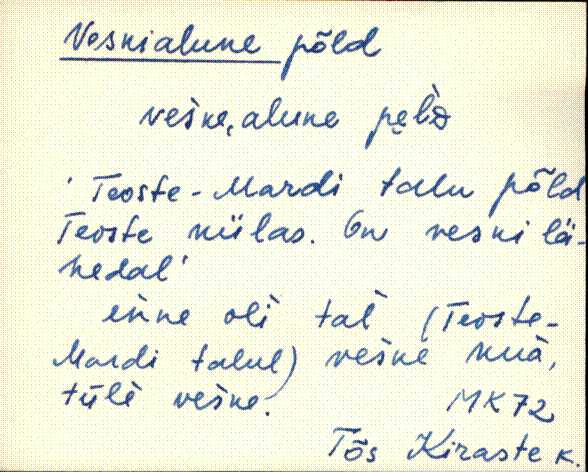 Veskialune põld
veśkę,alune pęĺ̀d
' Teoste-Mardi talu põld
Teoste külas. On veski lä-
hedal'
enne oli tal (Teoste-
Mardi talul) veśke kua,
tūle veśke.
MK72
Tõs Kiraste k.